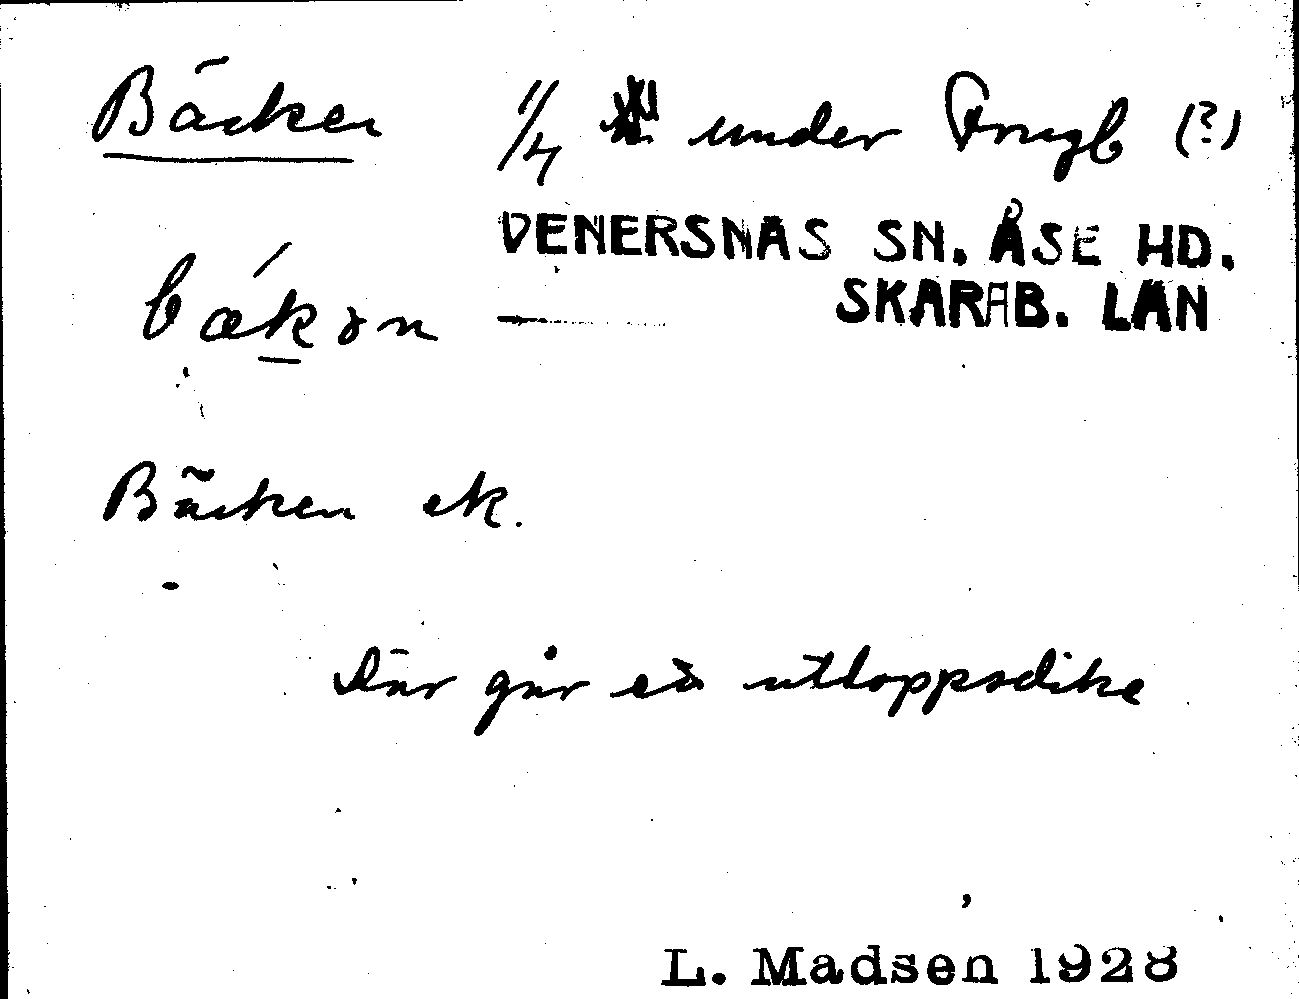 Bäcken 1/4 under Frugb (?)
VENERSNÄS SN. ÅSE HD.
SKARAB. LÄN
bækən —
Bäcken ek.
Där går ett utloppsdike
L. Madsen 1928